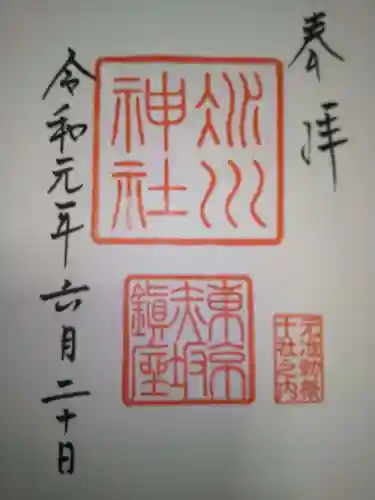 奉拝
冰川
神社
東京
赤坂
鎮座
元准勅祭
十社之内
令和元年六月二十日